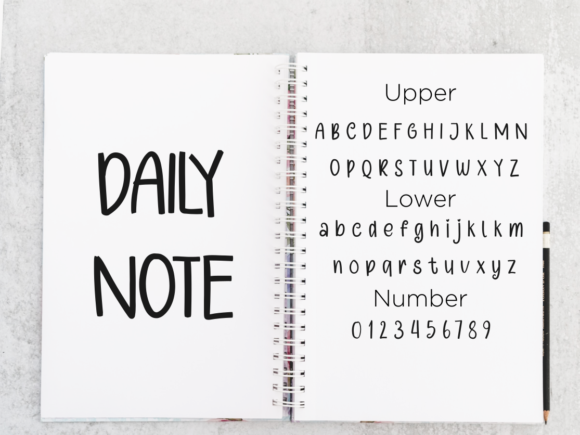 DAILY
NOTE
Upper
A B C D E F G H I J K L M N
O P Q R S T U V W X Y Z
Lower
a b c d e f g h i j k l k m
n o p q r s t u v x y z
Number
0 1 2 3 4 5 6 7 8 9